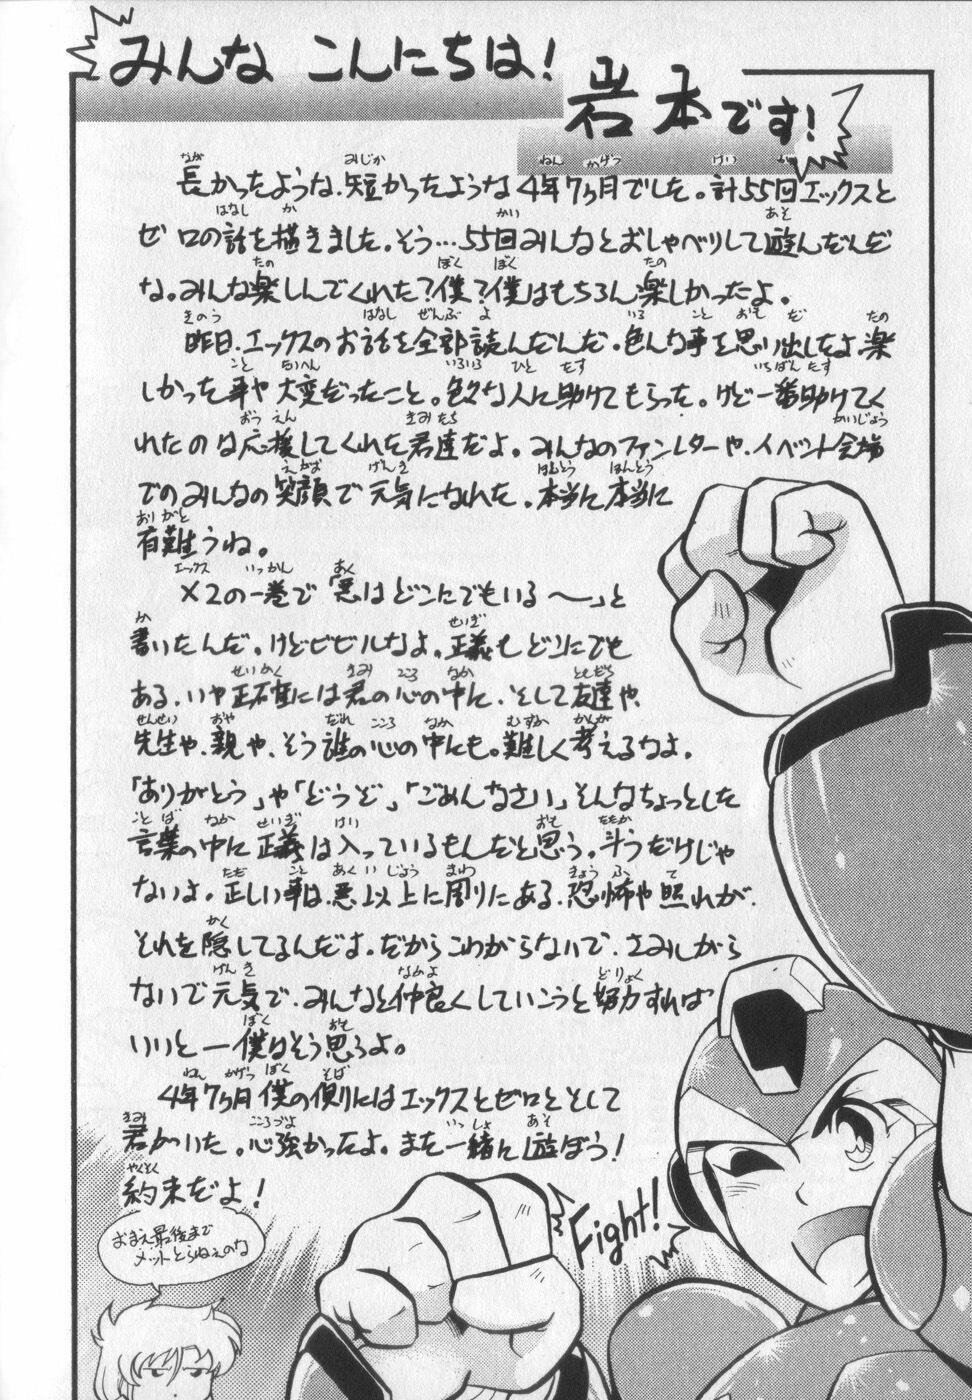 みんな こんにちは!
岩本です!
長かったような、短かったような4年7ヶ月でした。計55回エックスと
ゼロの話を描きました。そう…55回みんなとおしゃべりして遊んだんだ
な。みんな楽しんでくれた?僕?僕はもちろん楽しかったよ。
昨日、エックスのお話を全部読んだんだ。色んな事を思い出したよ楽
しかった事や大変だったこと。色々な人に助けてもらった。けど一番助けてく
れたのは応援してくれた君達だよ。みんなのファンレターや、イベント会場
でのみんなの笑顔で元気になれた。本当に本当に
有難うね。
X2の一巻で「悪はどこにでもいる〜」と
書いたんだ。けどビビルなよ。正義もどこにでも
ある、いや正確には君の心の中に、そして友達や、
先生や、親や、そう誰の心の中にも。難しく考えるなよ。
「ありがとう」や「どうぞ」「ごめんなさい」そんなちょっとした
言葉の中に正義は入っているもんだと思う。斗うだけじゃ
ないよ。正しい事は、悪以上に周りにある、恐怖や照れが、
それを隠してるんだよ。だからこわがらないで、さみしがら
ないで元気で、みんなと仲良くしていこうと努力すれば
いいと―僕はそう思うよ。
4年7ヶ月僕の側りにはエックスとゼロとそして
君がいた。心強かったよ。また一緒に遊ぼう!
約束だよ!
おまえ最後まで
メットとらねぇのな
Fight!